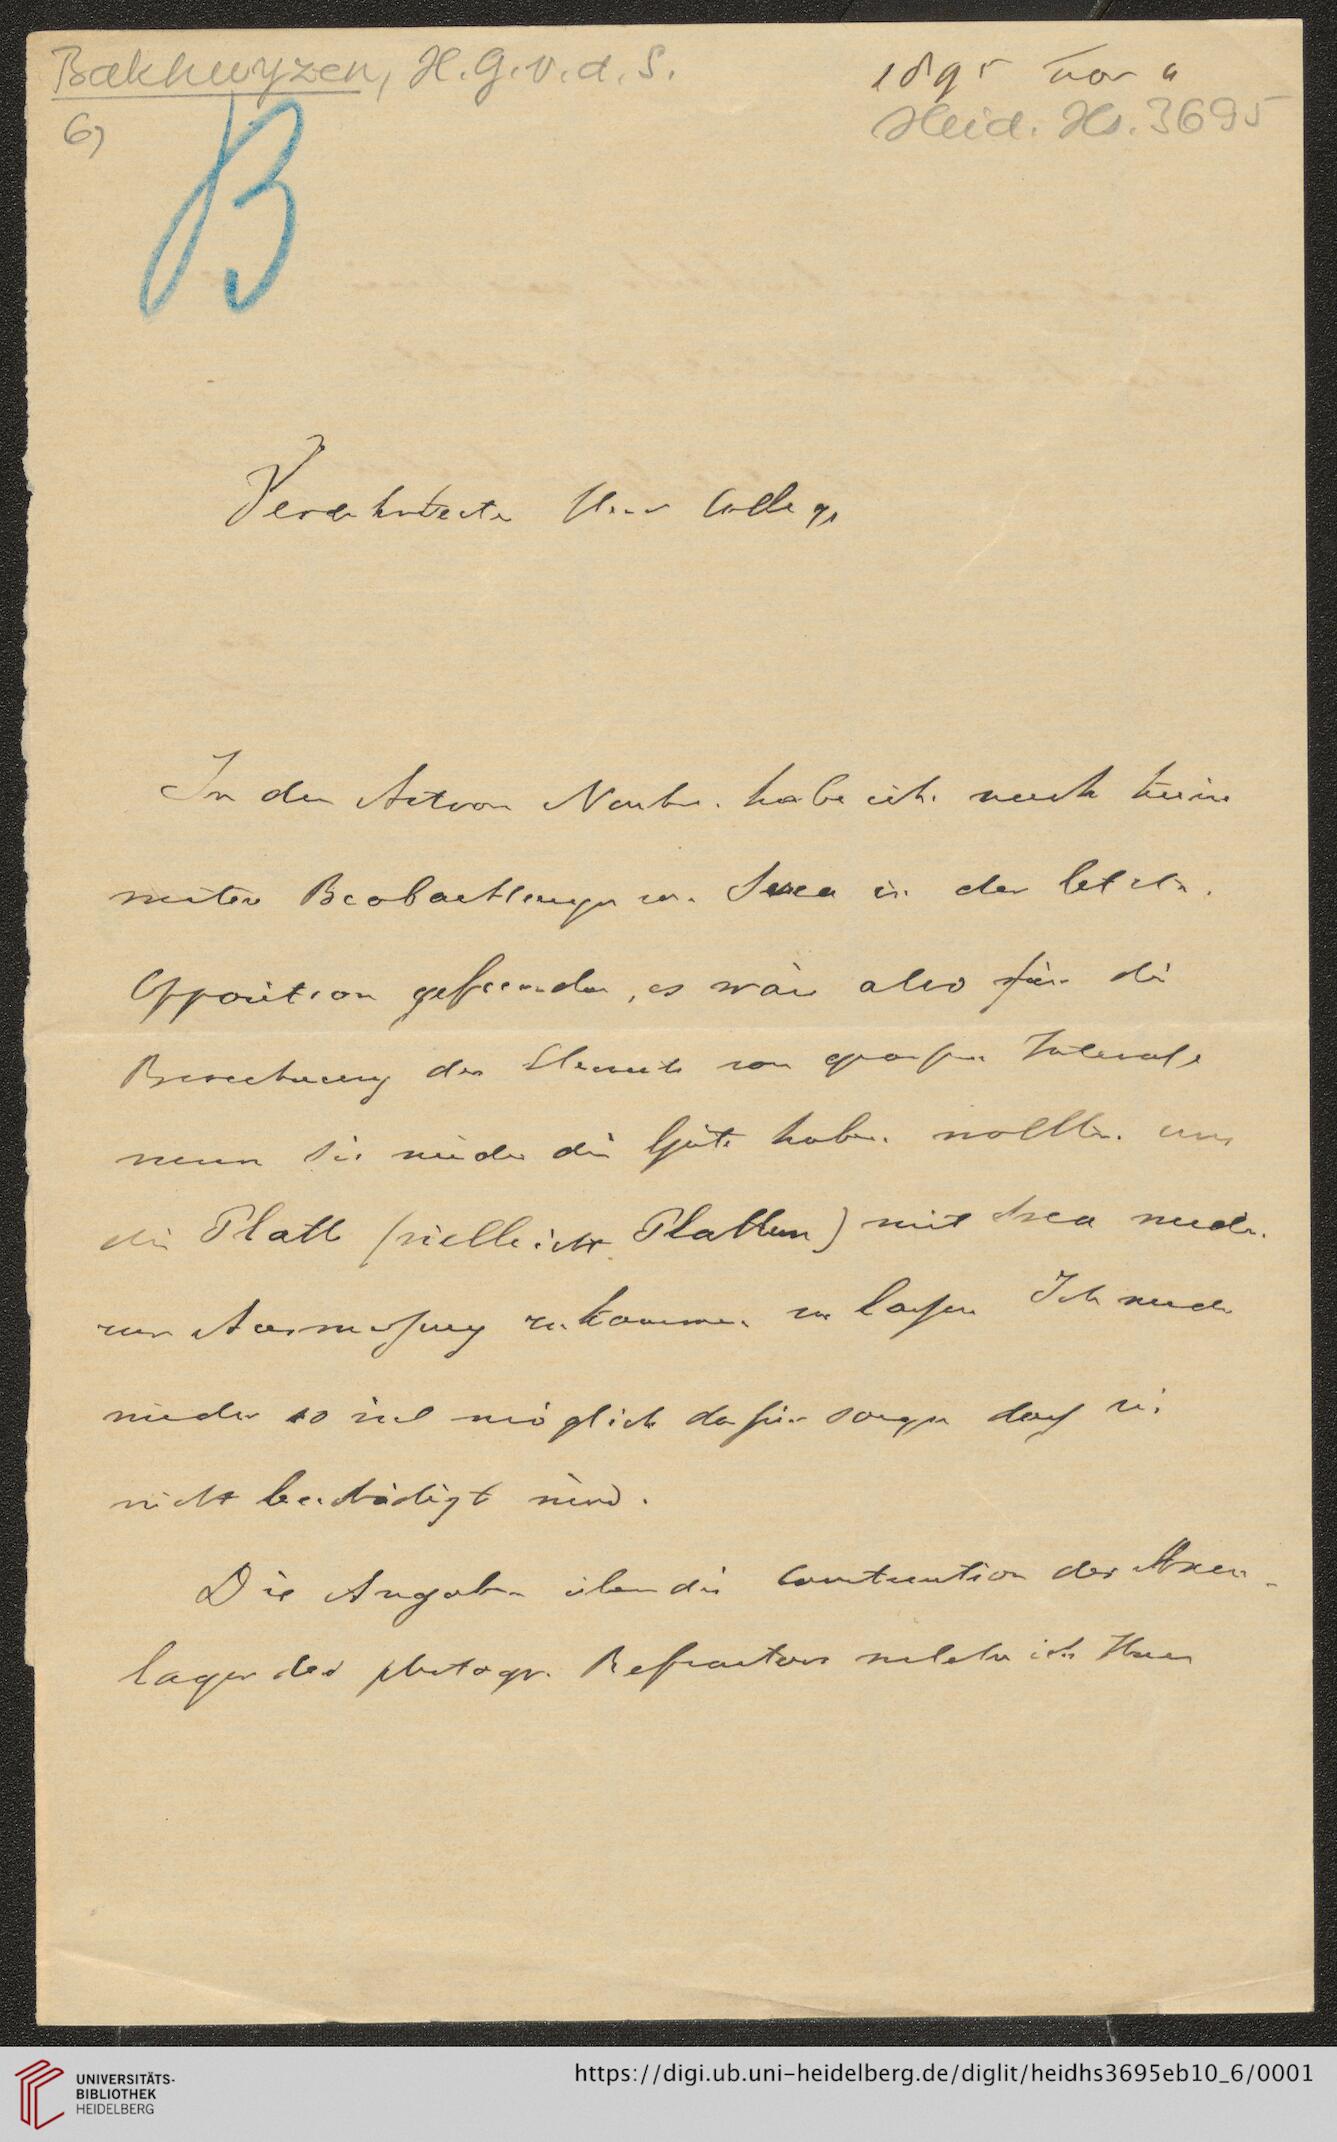 Bakhuyzen, H. G. v. d. S.
1895 Nov 4
6)
Heid. Hs. 3695
B
Verehrtester Herr College
In den Astron Nachr. habe ich noch keine
weiter Beobachtungen von in der letzten.
Opposition gefunden, es wäre also für die
Berechnung der Elemente von grossem Interesse
wenn Sie wieder die Güte haben wollten uns
die Platte (vielleicht Platten) mit wieder
zur Ausmessung zukommen zu lassen Ich werde
wieder so viel möglich dafür sorgen dass sie
nicht beschädigt wird.
Die Angaben über die Construction der Axen-
lager des photogr. Refractors welche ich Ihnen
UNIVERSITÄTS-
BIBLIOTHEK
HEIDELBERG
https://digi.ub.uni-heidelberg.de/diglit/heidhs3695eb10_6/0001